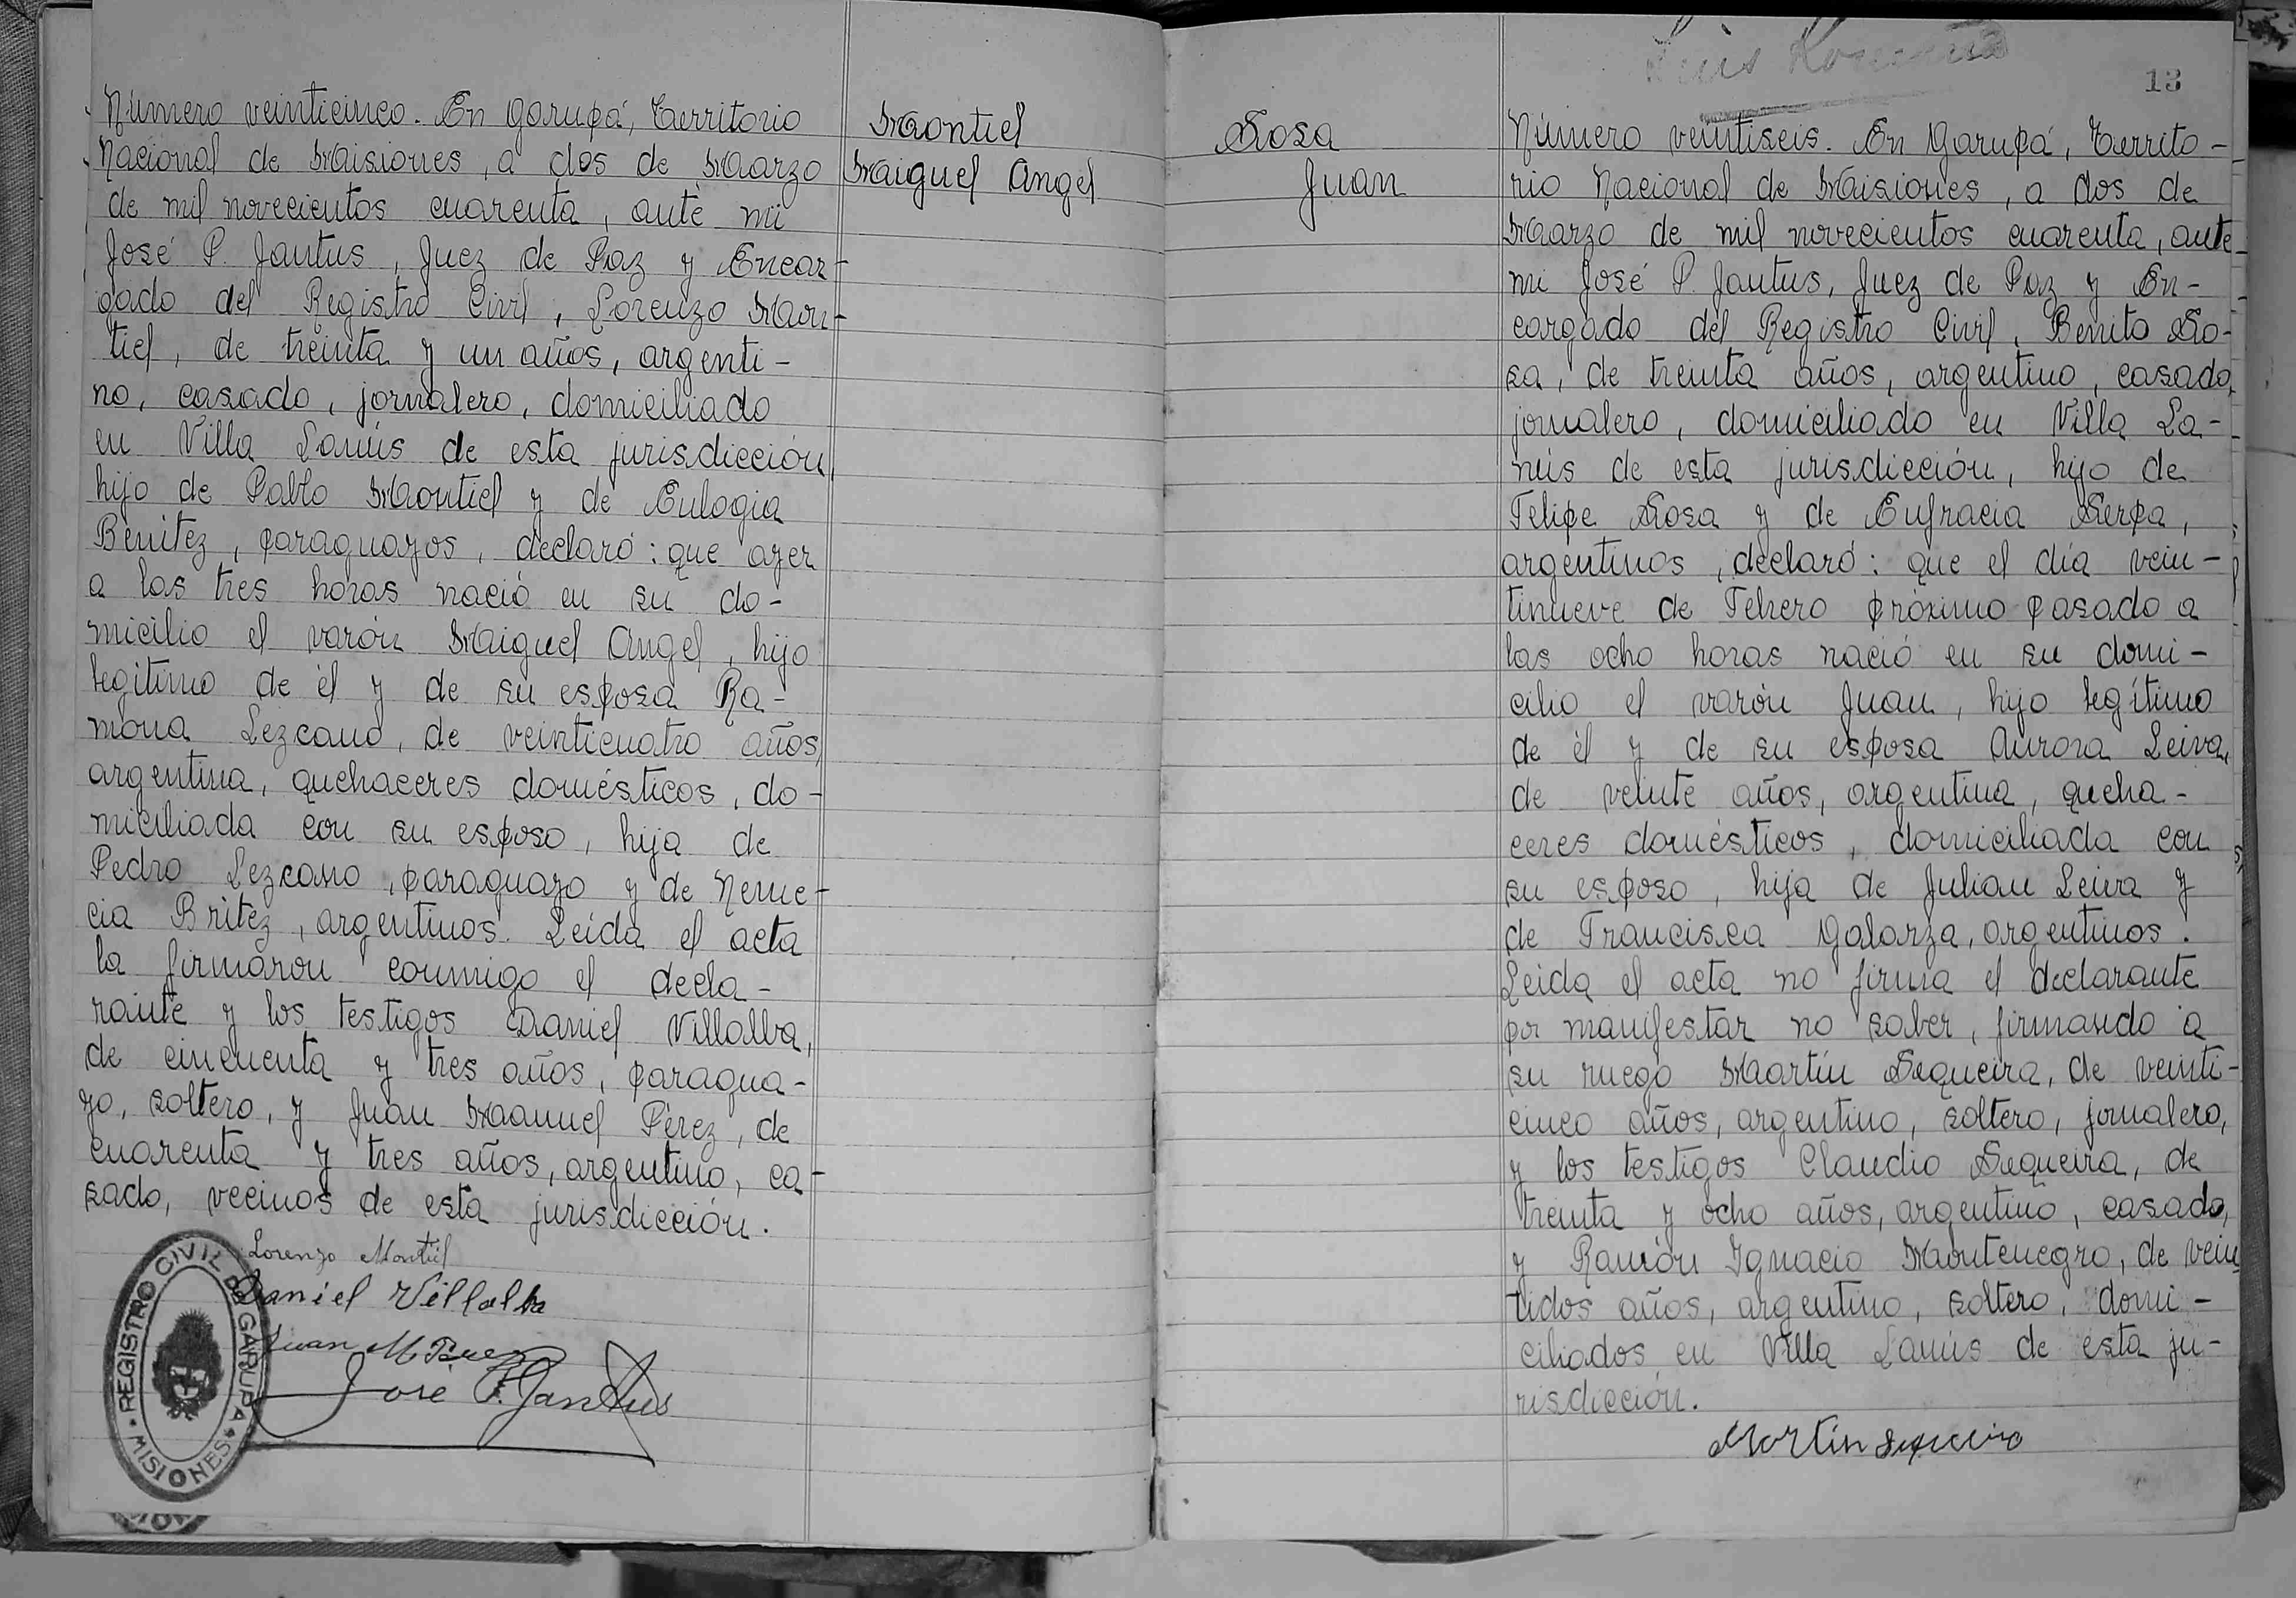 Número veinticinco. En Garupá, Territorio
Nacional de Misiones, a dos de Marzo
de mil novecientos cuarenta, ante mi
José P. Jantus, Juez de Paz y Encar-
gado del Registro Civil, Lorenzo Mon-
tiel, de treinta y un años, argenti-
no, casado, jornalero, domiciliado
en Villa Lanús de esta jurisdicción,
hijo de Pablo Montiel y de Eulogia
Benitez, paraguayos, declaró: que ayer
a las tres horas nació en su do-
micilio el varón Miguel Angel, hijo
legitimo de él y de su esposa Ra-
mona Lezcano, de veinticuatro años,
argentina, quehaceres domésticos, do-
miciliada con su esposo, hija de
Pedro Lezcano, paraguayo y de Neme-
cia Britez, argentinos. Leida el acta
la firmaron conmigo el decla-
rante y los testigos Daniel Villalba,
de cincuenta y tres años, paragua-
yo, soltero, y Juan Manuel Pérez, de
cuarenta y tres años, argentino, ca-
sado, vecinos de esta jurisdicción.
Lorenzo Montiel
Daniel Villalba
Juan M Perez
José P. Jantus
REGISTRO CIVIL DE GARUPA
MISIONES
Montiel
Miguel Angel
Luis
13
Sosa
Juan
Número veintiseis. En Garupá, Territo-
rio Nacional de Misiones, a dos de
Marzo de mil novecientos cuarenta, ante
mi José P. Jantus, Juez de Paz y En-
cargado del Registro Civil, Benito So-
sa, de treinta años, argentino, casado,
jornalero, domiciliado en Villa La-
nús de esta jurisdicción, hijo de
Felipe Sosa y de Eufracia Serpa,
argentinos, declaró: que el día vein-
tinueve de Febrero próximo pasado a
las ocho horas nació en su domi-
cilio el varón Juan, hijo legítimo
de él y de su esposa Aurora Leiva,
de veinte años, argentina, queha-
ceres domésticos, domiciliada con
su esposo, hija de Julian Leiva y
de Francisca Galarza, argentinos.
Leida el acta no firma el declarante
por manifestar no saber, firmando a
su ruego Martín Sequeira, de veinti-
cinco años, argentino, soltero, jornalero,
y los testigos Claudio Sequeira, de
treinta y ocho años, argentino, casado,
y Ramón Ignacio Montenegro, de vein
tidos años, argentino, soltero, domi-
ciliados en Villa Lanús de esta ju-
risdicción.
Martín Sequeira